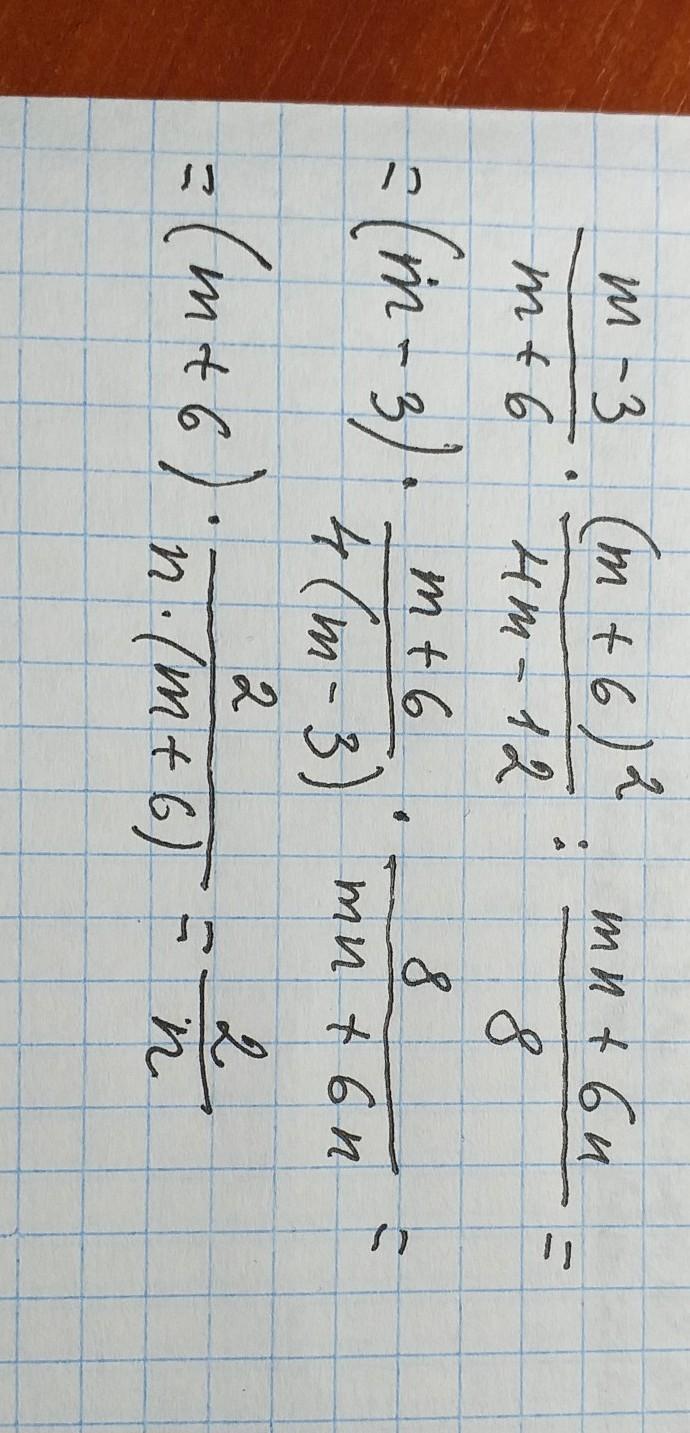 (m-3)/(m+6) · (m+6)²/(4m-12) : (mn+6n)/8 =
= (m-3) · (m+6)/(4(m-3)) · 8/(mn+6n) =
= (m+6) · 2/(n·(m+6)) = 2/n